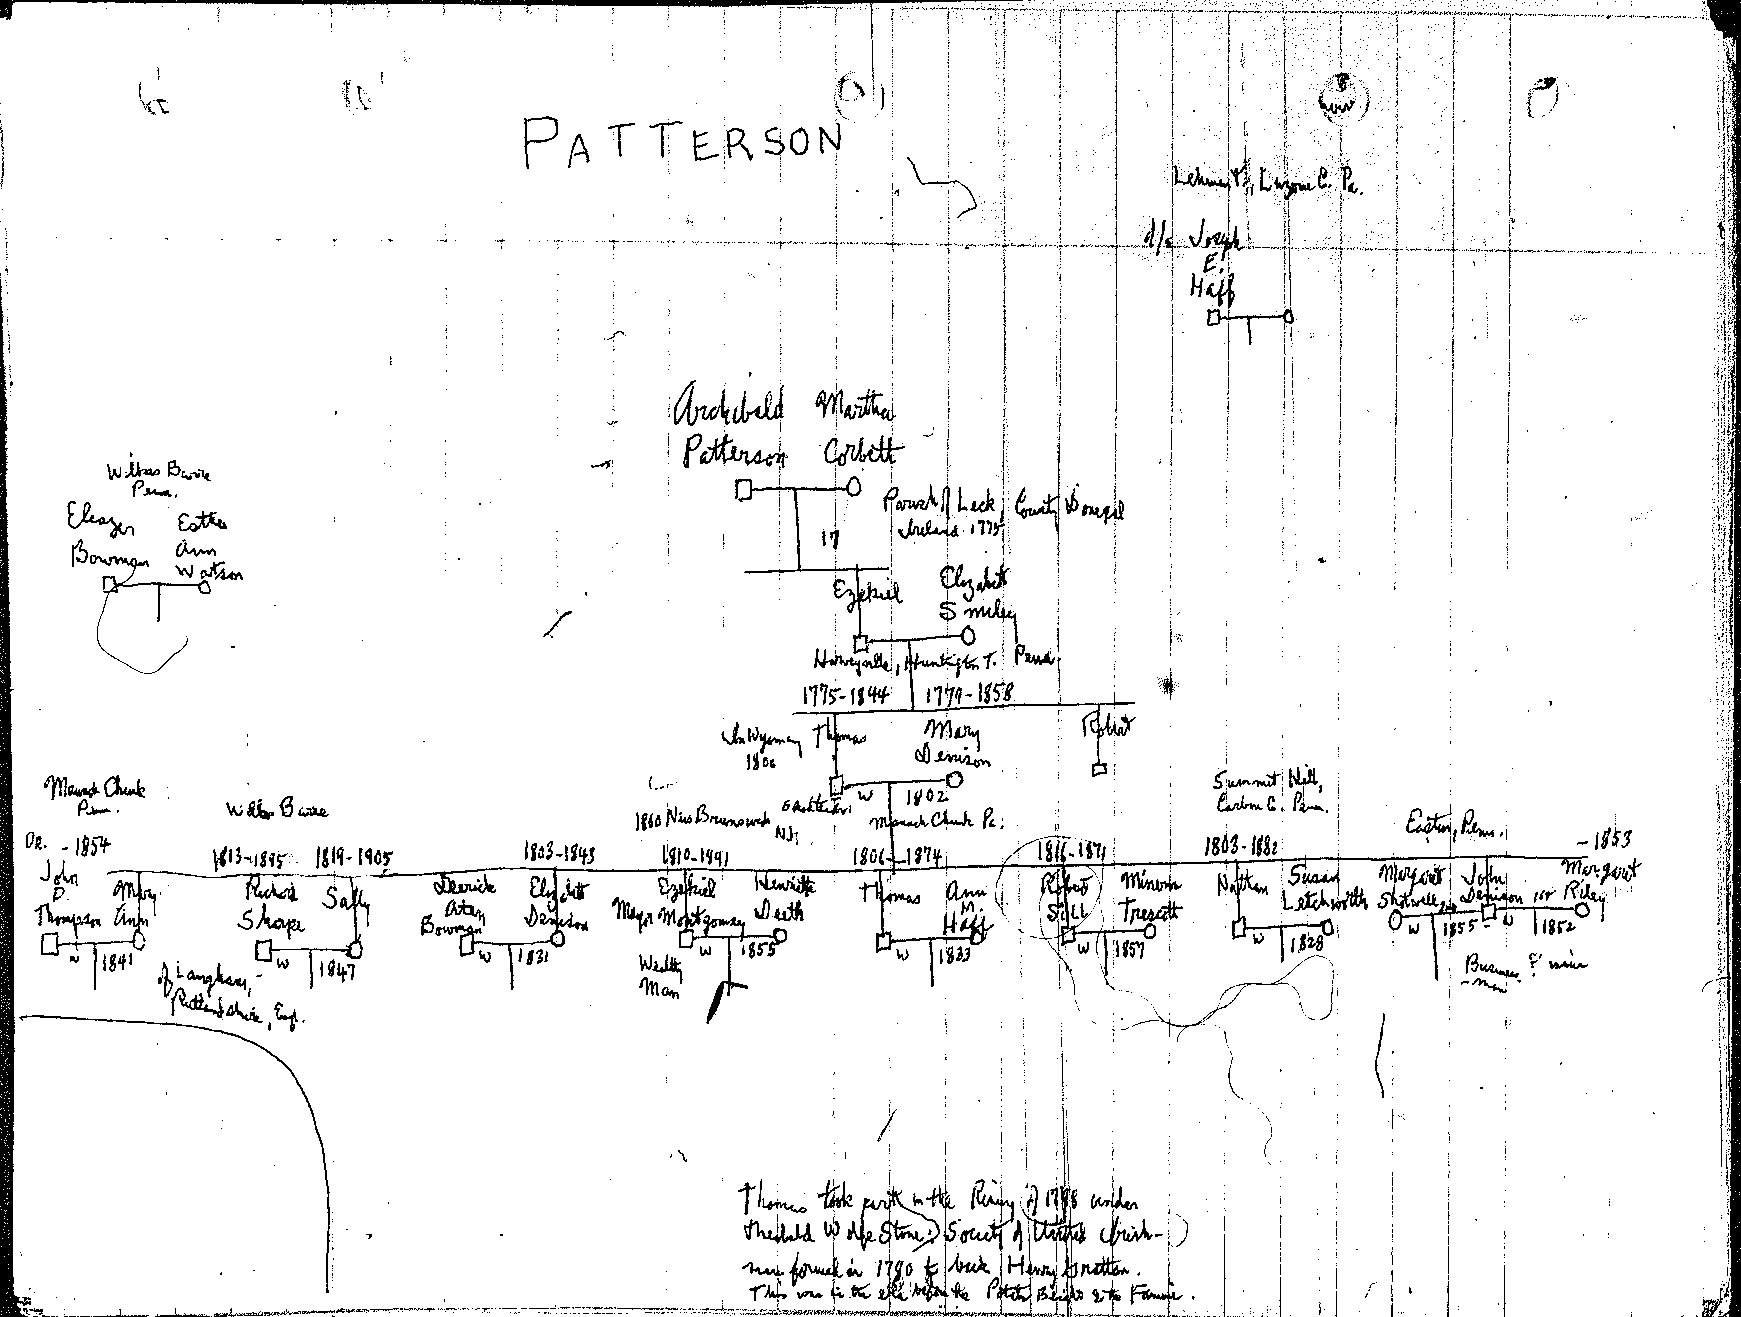 PATTERSON
Lehman T., Luzerne C. Pa.
d/o Joseph
E.
Haff
Archibald Martha
Patterson Corbett
Wilkes Barre
Penn.
Eleazer Esther
Bowman Ann
Watson
Parish of Leck, County Donegal
Ireland 1775
17
Ezekiel Elizabeth
Smiley
Harveyville, Huntington T. Penna.
1775-1844 1779-1858
Thomas Mary Robert
Denison
In Wyoming
1806
W 1802
Mauch Chunk Pa.
1860 New Brunswick
N.J.
Mauch Chunk
Penn.
Wilkes Barre
Summit Hill,
Carbon C. Penn.
Easton, Penn.
DR. -1854 1813-1895 1819-1905 1803-1843 1810-1891 1806-1874 1816-1871 1803-1882 -1853
John Mary
D. Ann
Thompson
W 1841
Richard Sally
Sharpe
W 1847
of Langham,
Rutlandshire, Engl.
Derrick Elizabeth
Aten Denison
Bowman
W 1831
Ezekiel Henriette
Mayor Montgomery Deeth
W 1855
Wealthy
Man
Thomas Ann
M
Haff
W 1833
Robert Minerva
Still Trescott
W 1857
Nathan Susan
Letchworth
W 1828
Margaret John Margaret
Shotwell 2nd Denison 1st Riley
W 1855- W 1852
Business
-man
Thomas took part in the Rising of 1798 under
Theobald Wolfe Tone: Society of United Irish-
men formed in 1790 to back Henry Grattan.
This was in the era before the Potato Blight & the Famine.